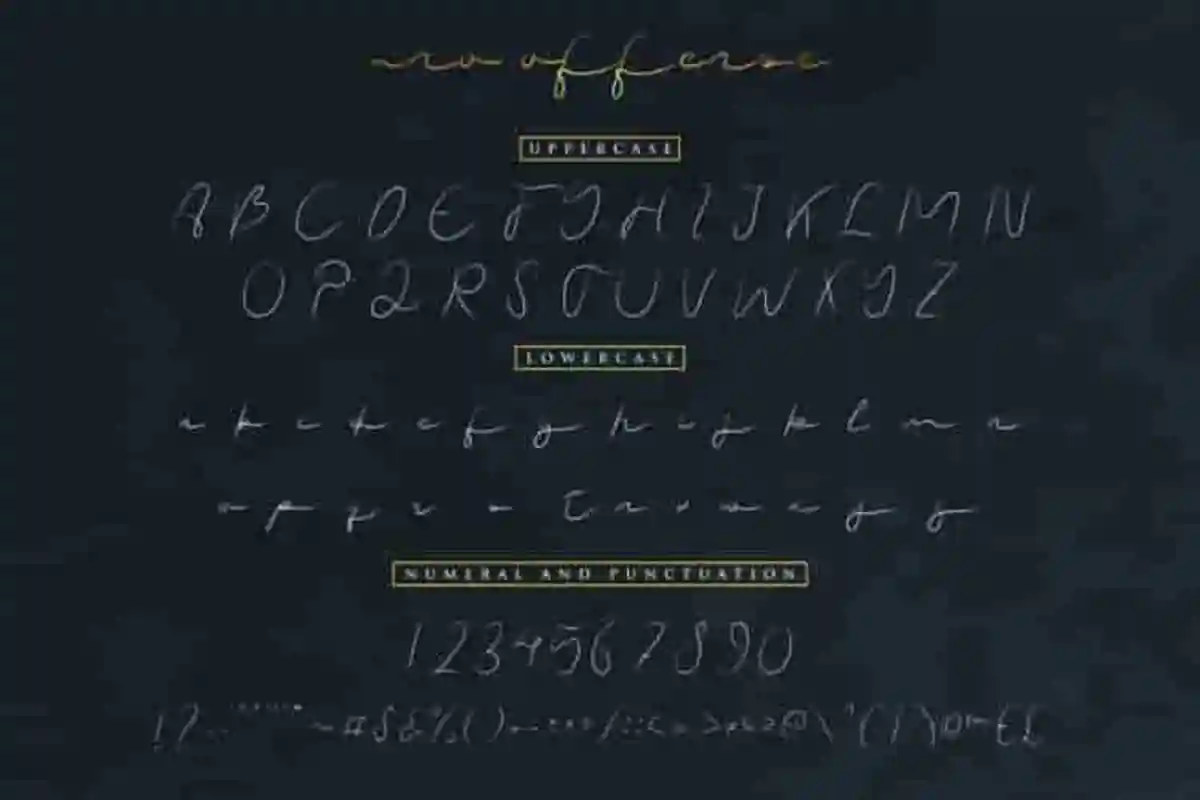 no offense
UPPERCASE
A B C D E F G H I J K L M N
O P Q R S T U V W X Y Z
LOWERCASE
a b c d e f g h i j k l m n
o p q r s t u v w x y z
NUMERAL AND PUNCTUATION
1 2 3 4 5 6 7 8 9 0